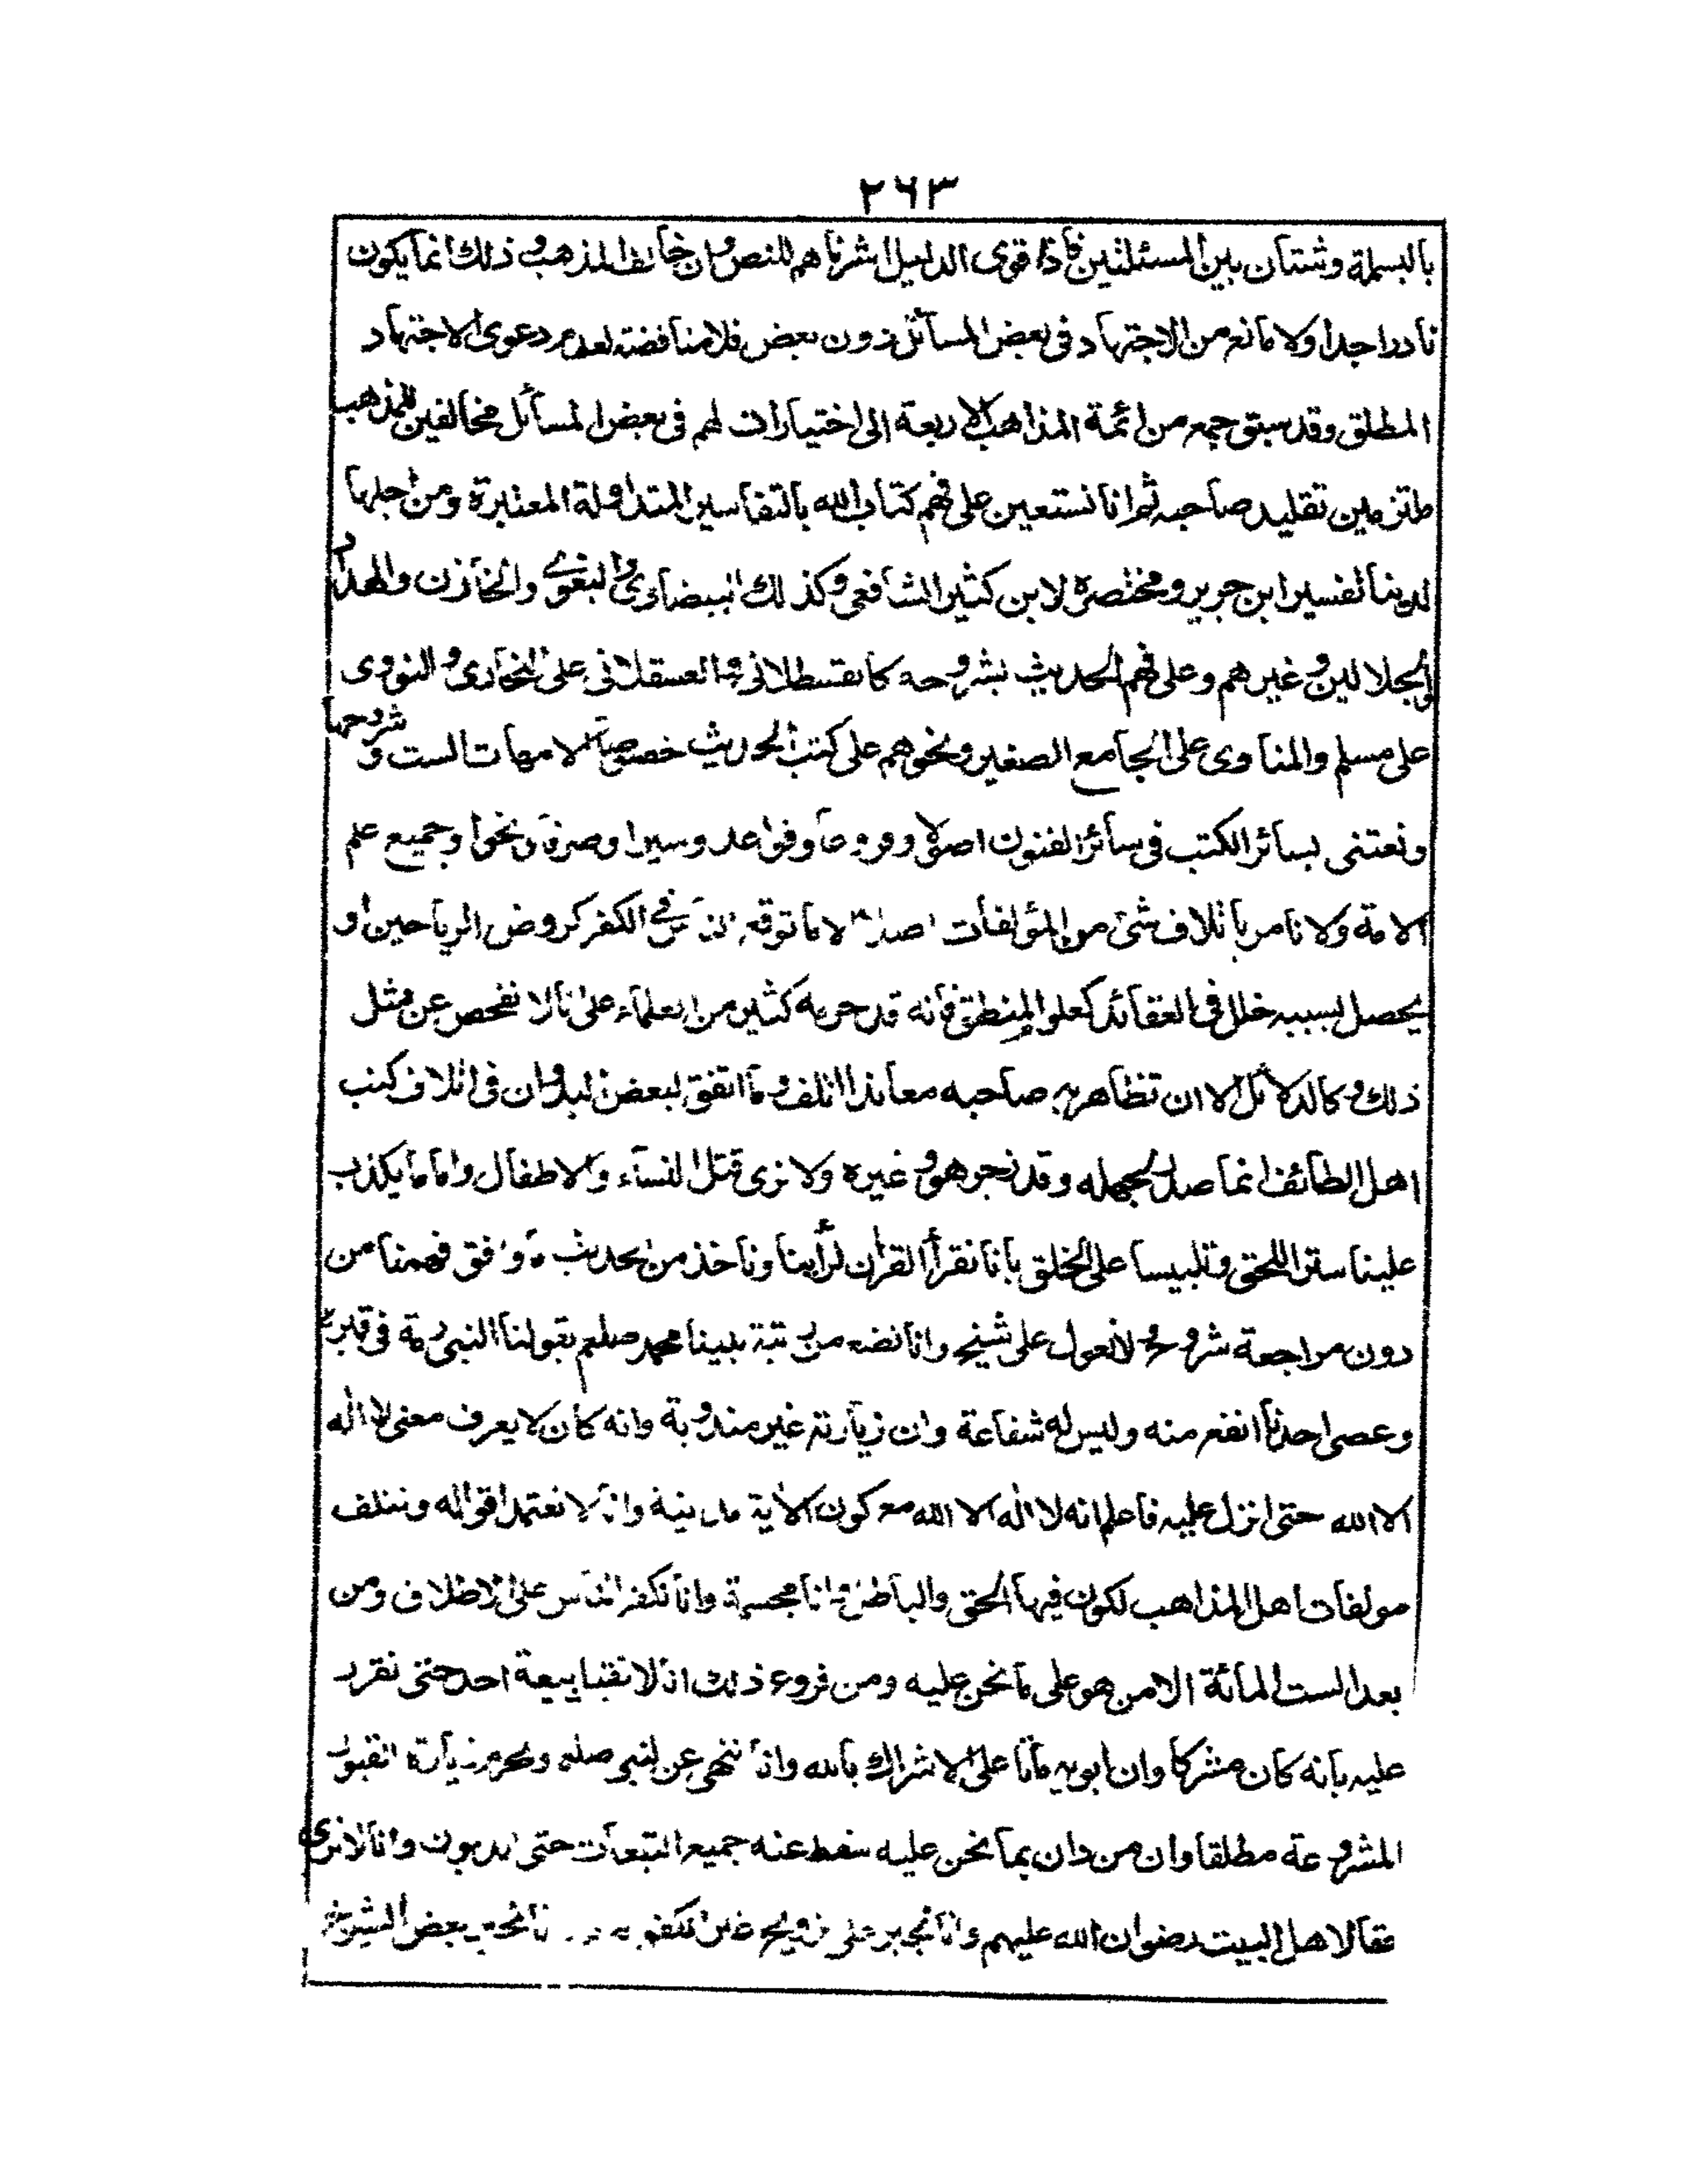 ٢٦٣
بالبسملة وشتان بين المسئلتين فاذا قوى الدليل اشرناهم للنص وان خالف المذهب وذلك انما يكون
نادرا جدا ولا مانع من الاجتهاد فى بعض المسائل دون بعض فلا مناقضة لعدم دعوى الاجتهاد
المطلق وقد سبق جمع من ائمة المذاهب الاربعة الى اختيارات لهم فى بعض المسائل مخالفين للمذهب
ملتزمين تقليد صاحبه ثم انا نستعين على فهم كتاب الله بالتفاسير المتداولة المعتبرة ومن اجلها
لدينا تفسير ابن جرير ومختصره لابن كثير الشافعى وكذلك البيضاوى والبغوى والخازن والحداد
والجلالين وغيرهم وعلى فهم الحديث بشروحه كالقسطلانى والعسقلانى على البخارى والنووى
على مسلم والمناوى على الجامع الصغير ونحوهم على كتب الحديث خصوصا الامهات الست وشروحها
ونعتنى بسائر الكتب فى سائر الفنون اصولا وفروعا وقواعد وسيرا وصرفا ونحوا وجميع علم
الامة ولا نامر باتلاف شئ من المؤلفات اصلا الا ما توقع الناس فى الكفر كروض الرياحين او
يحصل بسببه خلل فى العقائد كعلم المنطق فانه قد حرمه كثير من العلماء على انا لا نفحص عن مثل
ذلك وكالدلائل الا ان تظاهر به صاحبه معاندا اتلف وما اتفق لبعض البدوان فى اتلاف كتب
اهل الطائف انما صدر لجهله وقد زجر هو وغيره ولا نرى قتل النساء والاطفال واما ما يكذب
علينا سترا للحق وتلبيسا على الخلق بانا نقرأ القرأن لرأينا وناخذ من الحديث ما وافق فهمنا من
دون مراجعة شروح ولا نعول على شيخ وانا نضع من رتبة نبينا محمد صلعم بقولنا النبى رمة فى قبره
وعصى احدنا انفع منه وليس له شفاعة وان زيارته غير مندوبة وانه كان لا يعرف معنى لا اله
الا الله حتى انزل عليه فاعلم انه لا اله الا الله مع كون الاية مدينية وانا لا نعتمد اقواله ونتلف
مولفات اهل المذاهب لكون فيها الحق والباطل وانا مجسمة وانا نكفر الناس على الاطلاق ومن
بعد الست المائة الا من هو على ما نحن عليه ومن فروع ذلك انا لا نقبل بيعة احد حتى نقرر
عليه بانه كان مشركا وان ابويه ماتا على الاشراك بالله وانا ننهى عن النبى صلعم ونحرم زيارة القبور
المشروعة مطلقا وان من دان بما نحن عليه سقط عنه جميع التبعات حتى الديون وانا لا نرى
حقا لاهل البيت رضوان الله عليهم وانا نجبر على تزويج غير الكفو بعض الشيوخ